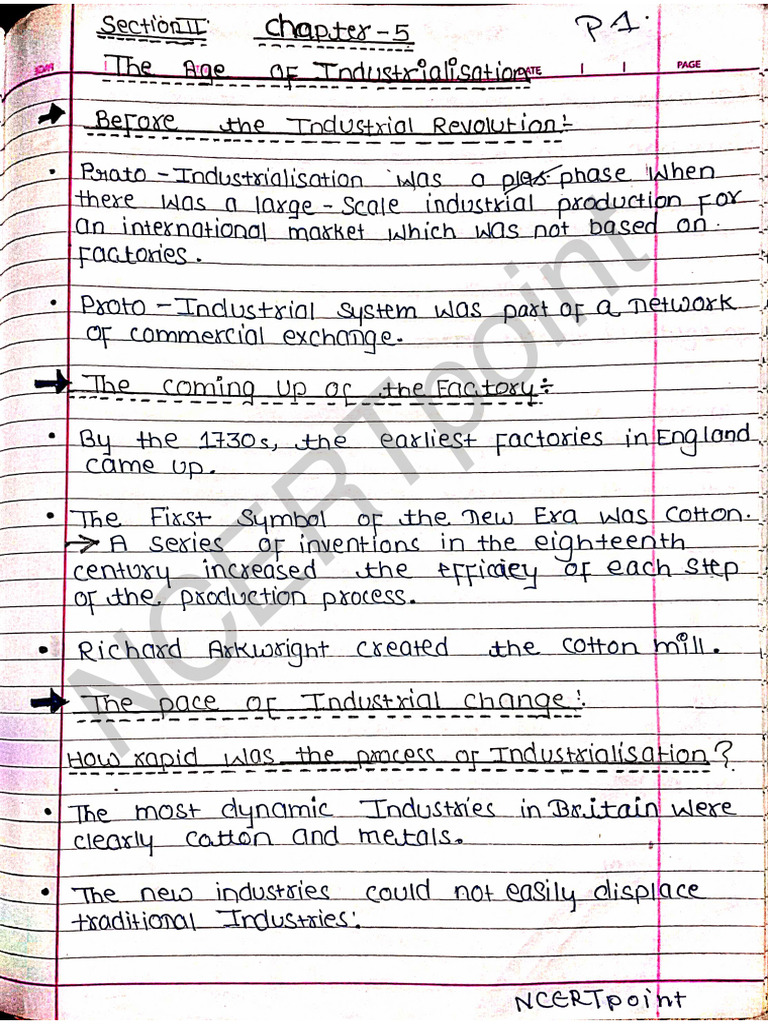 Section II chapter-5 P 1.
The Age of Industrialisation DATE PAGE
Before the Industrial Revolution:-
• Proto-Industrialisation was a phase when
there was a large-scale industrial production for
an international market which was not based on
factories.
• Proto-Industrial system was part of a network
of commercial exchange.
The coming up of the Factory:-
• By the 1730s, the earliest factories in England
came up.
• The First symbol of the new Era was cotton.
→ A series of inventions in the eighteenth
century increased the efficiey of each step
of the production process.
• Richard Arkwright created the cotton mill.
The pace of Industrial change:
How rapid was the process of Industrialisation?
• The most dynamic Industries in Britain were
clearly cotton and metals.
• The new industries could not easily displace
traditional Industries:
NCERTpoint
NCERTpoint